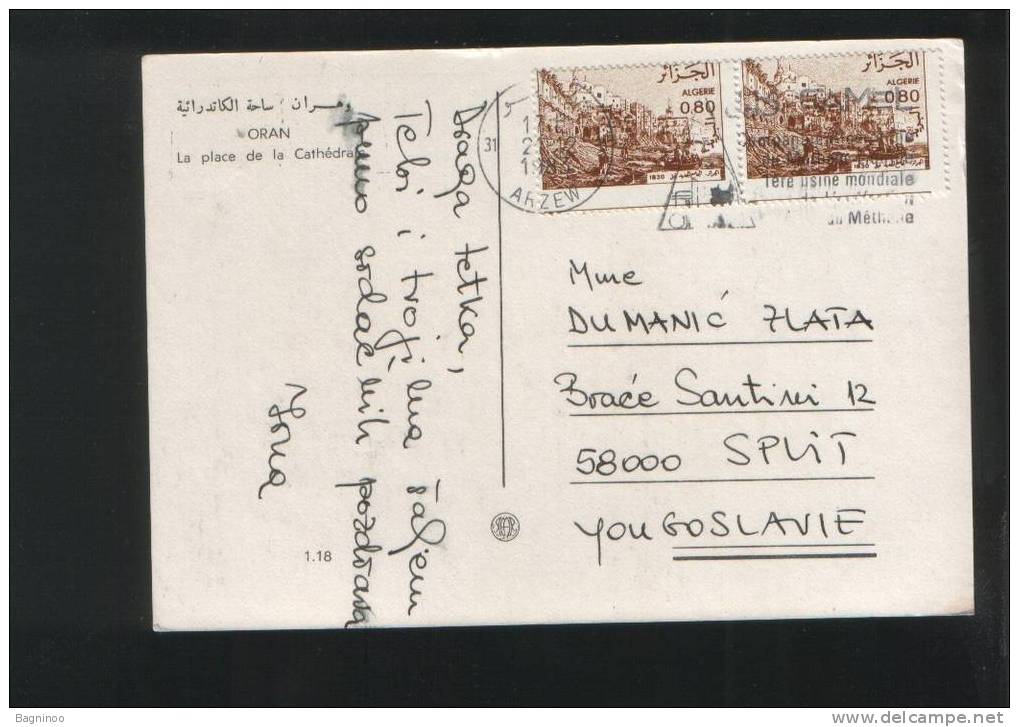 وهران : ساحة الكاتدرائية
ORAN
La place de la Cathédra
Draga tetka,
Tebi i tvojima šaljem
puno srdačnih pozdrava
1.18
الجزائر
ALGERIE
0,80
1830
الجزائر
ALGERIE
0,80
1830
31
ARZEW
1ère usine mondiale
du Méthane
Mme
DUMANIĆ ZLATA
Braće Santini 12
58000 SPLIT
YOUGOSLAVIE
Bagninoo
www.delcampe.net